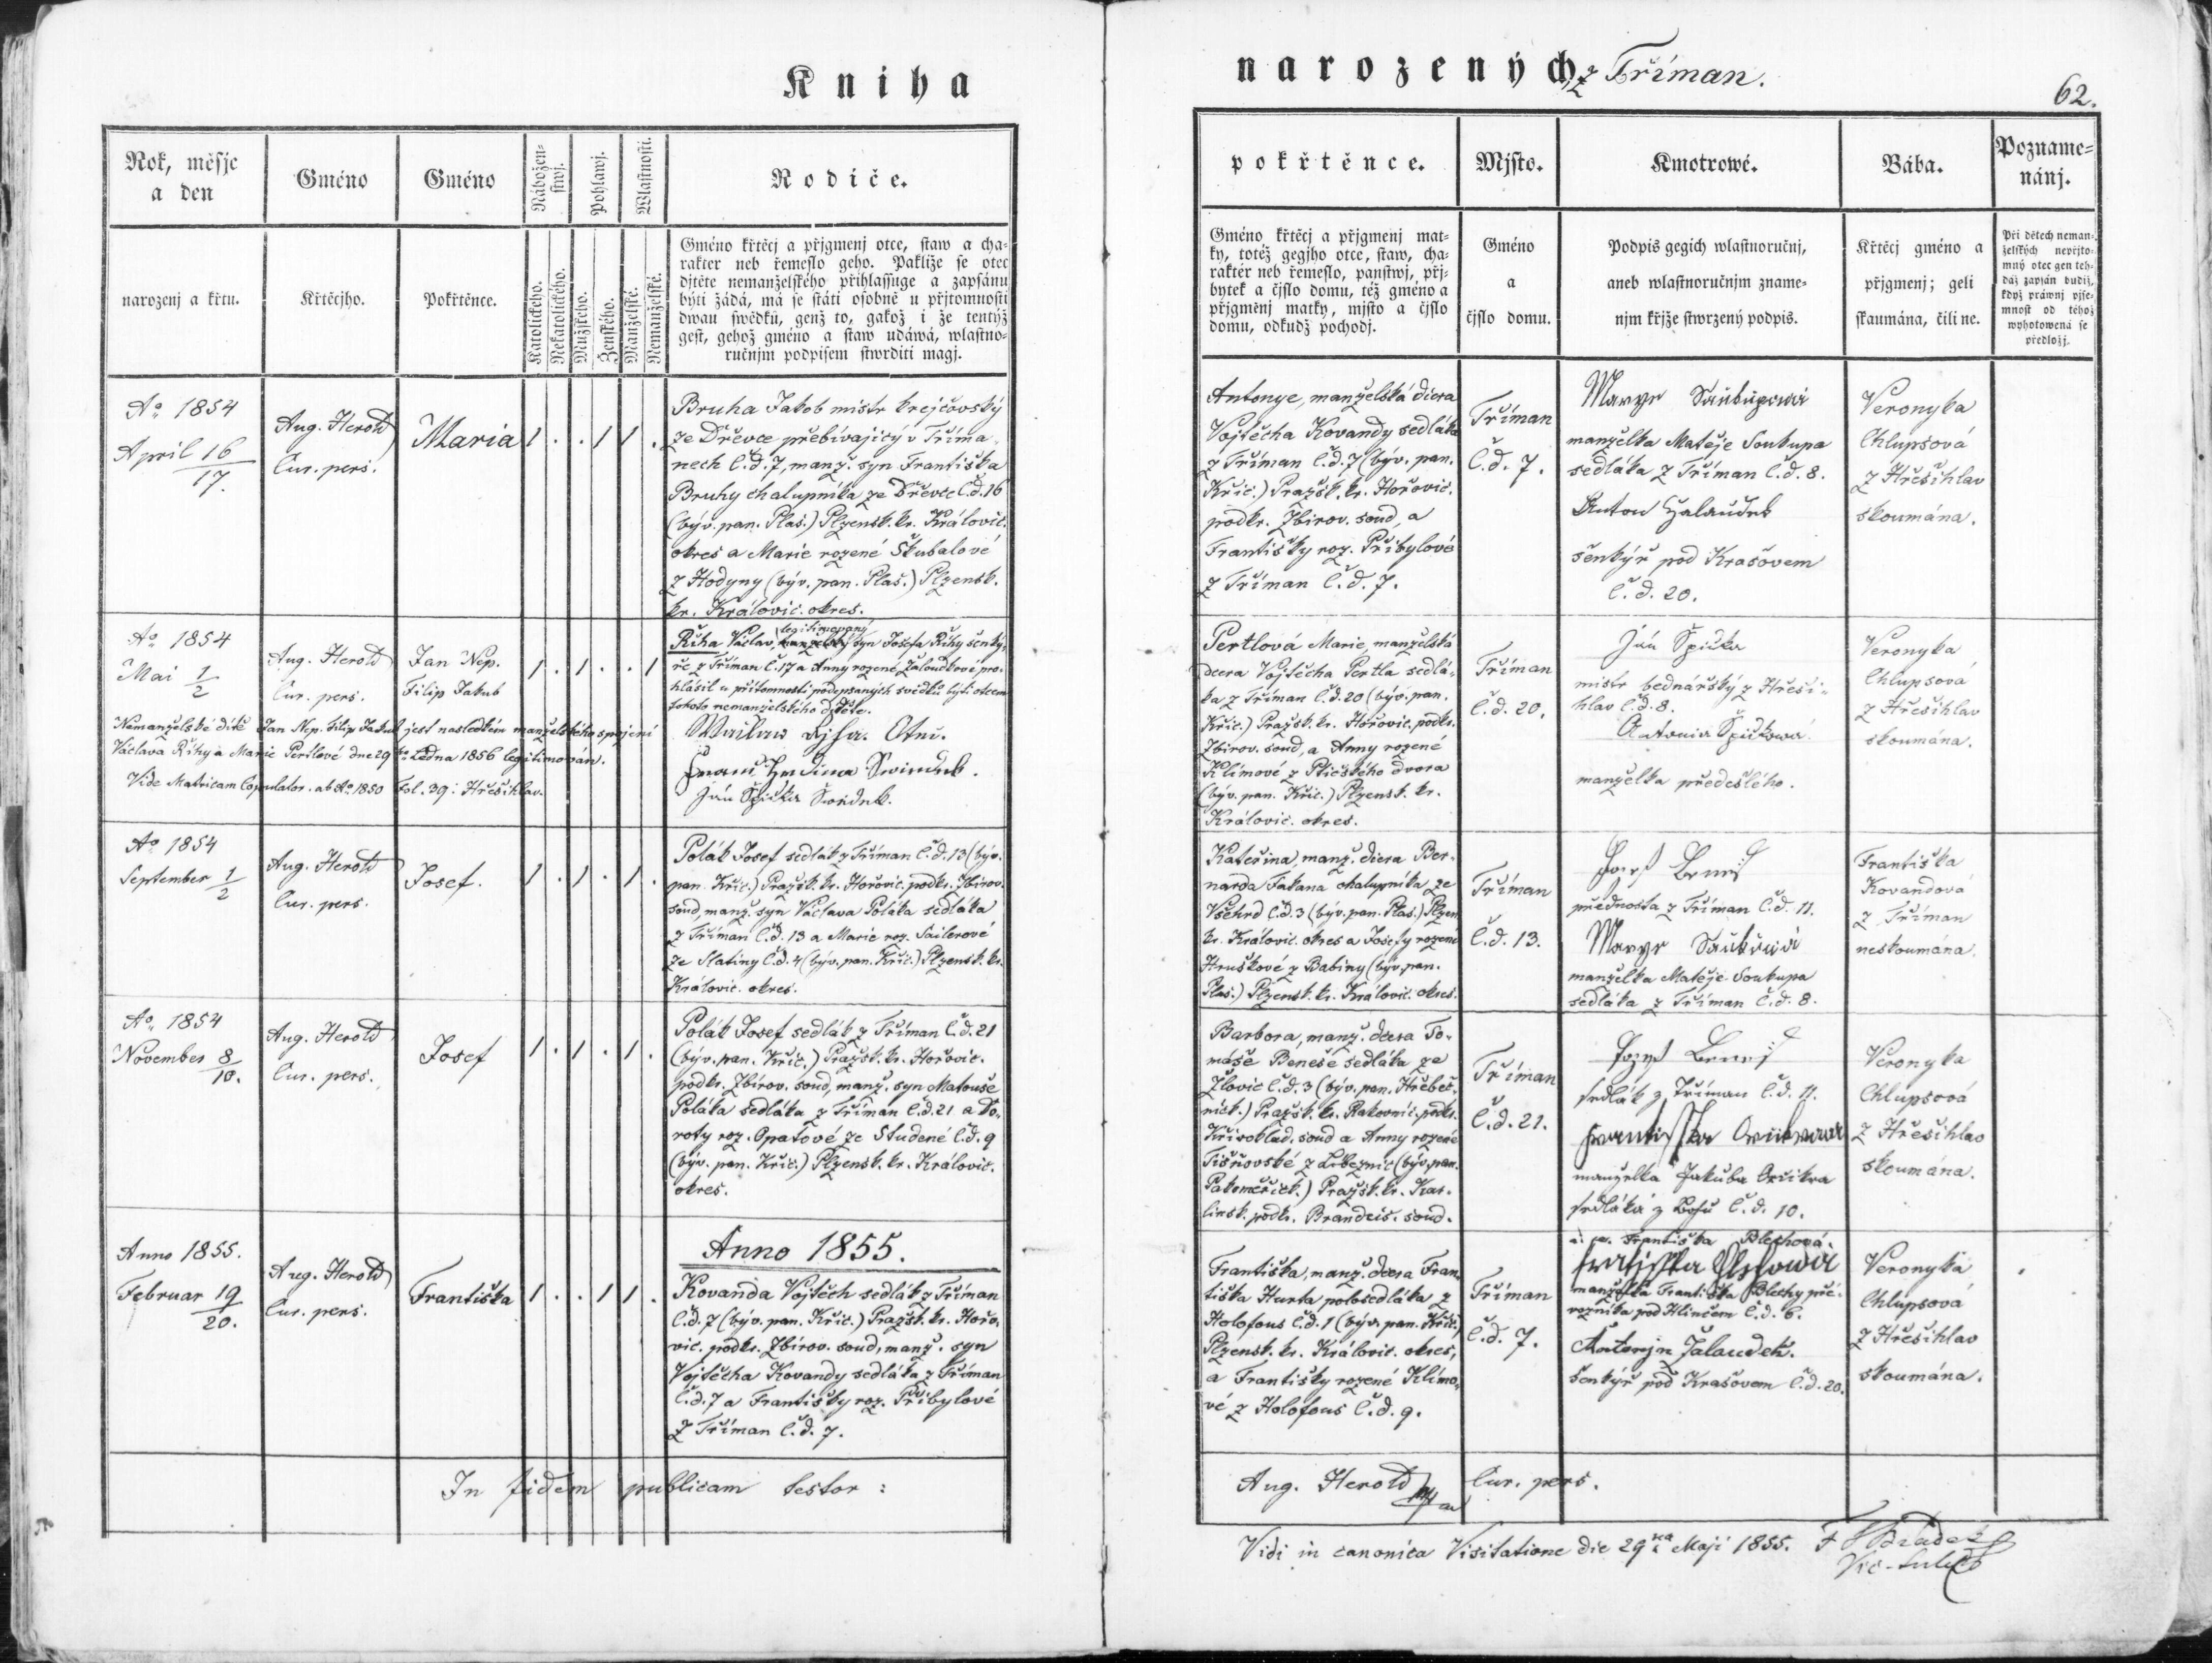 Kniha
Rok, měsjc
a den
Gméno
Gméno
Nábožen-
stwj.
Pohlawj.
Wlastnosti.
Rodiče.
narozenj a křtu.
Křtěcjho.
Pokřtěnce.
Katolického.
Nekatolického.
Mužského.
Ženského.
Manželské.
Nemanželské.
Gméno křtěcj a přjgmenj otce, staw a cha-
rakter neb řemeslo geho. Paklíže se otec
djtěte nemanželského přihlassuge a zapsánu
býti žádá, má se státi osobně u přjtomnosti
dwau swědků, genž to, gakož i že tentýž
gest, gehož gméno a staw udáwá, wlastno-
ručnjm podpisem stwrditi magj.
Ao 1854
April 16
17.
Aug. Herold
Cur. pers.
Maria
1 . . 1 1 .
Bruha Jakob mistr krejčovský
ze Dřevce přebívajicý v Tříma-
nech č.d. 7, manž. syn Františka
Bruhy chalupníka ze Dřevce č.d. 16
(býv. pan. Plas.) Plzensk. kr. Královic.
okres a Marie rozené Škubalové
z Hodyny (býv. pan. Plas.) Plzensk.
kr. Královic. okres.
Ao 1854
Mai 1
2
Aug. Herold
Cur. pers.
Jan Nep.
Filip Jakub
1 . 1 . . 1
legitimovaný
Říha Václav, manželský syn Josefa Říhy šenký-
ře z Tříman č. 17 a Anny rozené Žaloudkové pro-
hlásil u přítomnosti podepsaných svědků býti otcem
tohoto nemanželského dítěte.
Wacslaw Ržjha. Otec.
Swiedek.
Ján Špička Swědek.
Nemanželské dítě Jan Nep. Filip Jakub jest následkém manželského spojení
Václava Říhy a Marie Pertlové dne 29ho Ledna 1856 legitimován.
Vide Matricam Copulator. ab Ao 1850 Fol. 39: Hřešihlav.
Ao 1854
September 1
2
Aug. Herold
Cur. pers.
Josef.
1 . 1 . 1 .
Polák Josef sedlák z Tříman č.d. 13 (býv.
pan. Křic.) Pražsk. kr. Hořovic. podkr. Zbirov.
soud, manž. syn Václava Poláka sedláka
z Tříman č.d. 13 a Marie roz. Sailerové
ze Slatiny č.d. 4 (býv. pan. Křic.) Plzensk. kr.
Královic. okres.
Ao 1854
November 8
10.
Aug. Herold
Cur. pers.
Josef
1 . 1 . 1 .
Polák Josef sedlák z Tříman č.d. 21
(býv. pan. Křic.) Pražsk. kr. Hořovic.
podkr. Zbirov. soud, manž. syn Matouše
Poláka sedláka z Tříman č.d. 21 a Do-
roty roz. Opatové ze Studené č.d. 9
(býv. pan. Křic.) Plzensk. kr. Královic.
okres.
Anno 1855.
Anno 1855.
Februar 19
20.
Aug. Herold
Cur. pers.
Františka
1 . . 1 1 .
Kovanda Vojtěch sedlák z Tříman
č.d. 7 (býv. pan. Křic.) Pražsk. kr. Hořo-
vic. podkr. Zbirov. soud, manž. syn
Vojtěcha Kovandy sedláka z Tříman
č.d. 7 a Františky roz. Přibylové
z Tříman č.d. 7.
In fidem publicam testor:
narozených z Tříman.
62.
pokřtěnce.
Mjsto.
Kmotrowé.
Bába.
Pozname-
nánj.
Gméno křtěcj a přjgmenj mat-
ky, totéž gegjho otce, staw, cha-
raktér neb řemeslo, panstwj, přj-
bytek a čjslo domu, též gméno a
přjgměnj matky, mjsto a čjslo
domu, odkudž pochodj.
Gméno
a
čjslo domu.
Podpis gegich wlastnoručnj,
aneb wlastnoručnjm zname-
njm křjže stwrzený podpis.
Křtěcj gméno a
přjgmenj; geli
skaumána, čili ne.
Při dětech neman-
želských nepřjto-
mný otec gen teh-
dáž zapsán budiž,
když práwnj pjse-
mnost od téhož
wyhotowená se
předložj.
Antonye, manželská dcera
Vojtěcha Kovandy sedláka
z Tříman č.d. 7 (býv. pan.
Křic.) Pražsk. kr. Hořovic.
podkr. Zbirov. soud, a
Františky roz. Přibylové
z Tříman č.d. 7.
Tříman
č.d. 7.
Marye Saukupowá
manželka Matěje Soukupa
sedláka z Tříman č.d. 8.
Anton Zalaudek
šenkýř pod Krašovem
č.d. 20.
Veronyka
Chlupsová
z Hřešihlav
skoumána.
Pertlová Marie, manželská
dcera Vojtěcha Pertla sedlá-
ka z Tříman č.d. 20 (býv. pan.
Křic.) Pražsk. kr. Hořovic. podkr.
Zbirov. soud, a Anny rozené
Klímové z Ptičského dvora
(býv. pan. Křic.) Plzensk. kr.
Královic. okres.
Tříman
č.d. 20.
Ján Špička
mistr bednářský z Hřeši-
hlav č.d. 8.
Antonia Špičkowá
manželka předešlého.
Veronyka
Chlupsová
z Hřešihlav
skoumána.
Kateřina, manž. dcera Ber-
narda Fakana chalupníka ze
Všehrd č.d. 3 (býv. pan. Plas.) Plzen.
kr. Královic. okres a Josefy rozené
Hruškové z Babiny (býv. pan.
Plas.) Plzensk. kr. Královic. okres.
Tříman
č.d. 13.
Josef Beneš
přednosta z Tříman č.d. 11.
Marye
manželka Matěje Soukupa
sedláka z Tříman č.d. 8.
Františka
Kovandová
z Tříman
neskoumána.
Barbora, manž. dcera To-
máše Beneše sedláka ze
Zlovic č.d. 3 (býv. pan. Hřebeč-
nick.) Pražsk. kr. Rakovnic. podkr.
Křivoklád. soud a Anny rozené
Tišňovské z Libeznic (býv. pan.
Pakoměřick.) Pražsk. kr. Kar-
linsk. podkr. Brandeis. soud.
Tříman
č.d. 21.
Jozef Beneš
sedlák z Tříman č.d. 11.
Frantisska
manželka Jakuba
sedláka z č.d. 10.
Veronyka
Chlupsová
z Hřešihlav
skoumána.
Františka, manž. dcera Fran-
tiška Hurta polosedláka z
Holofous č.d. 1 (býv. pan. Křic.)
Plzensk. kr. Královic. okres,
a Františky rozené Klímo-
vé z Holofous č.d. 9.
Tříman
č.d. 7.
Františka Blechová.
manželka Františka Blechy pře-
vozníka pod Hlinčem č.d. 6.
Antonjn Žalaudek.
šenkýř pod Krašovem č.d. 20.
Veronyka
Chlupsová
z Hřešihlav
skoumána.
Aug. Herold Cur. pers.
Vidi in canonica Visitatione die 29na Maji 1855.